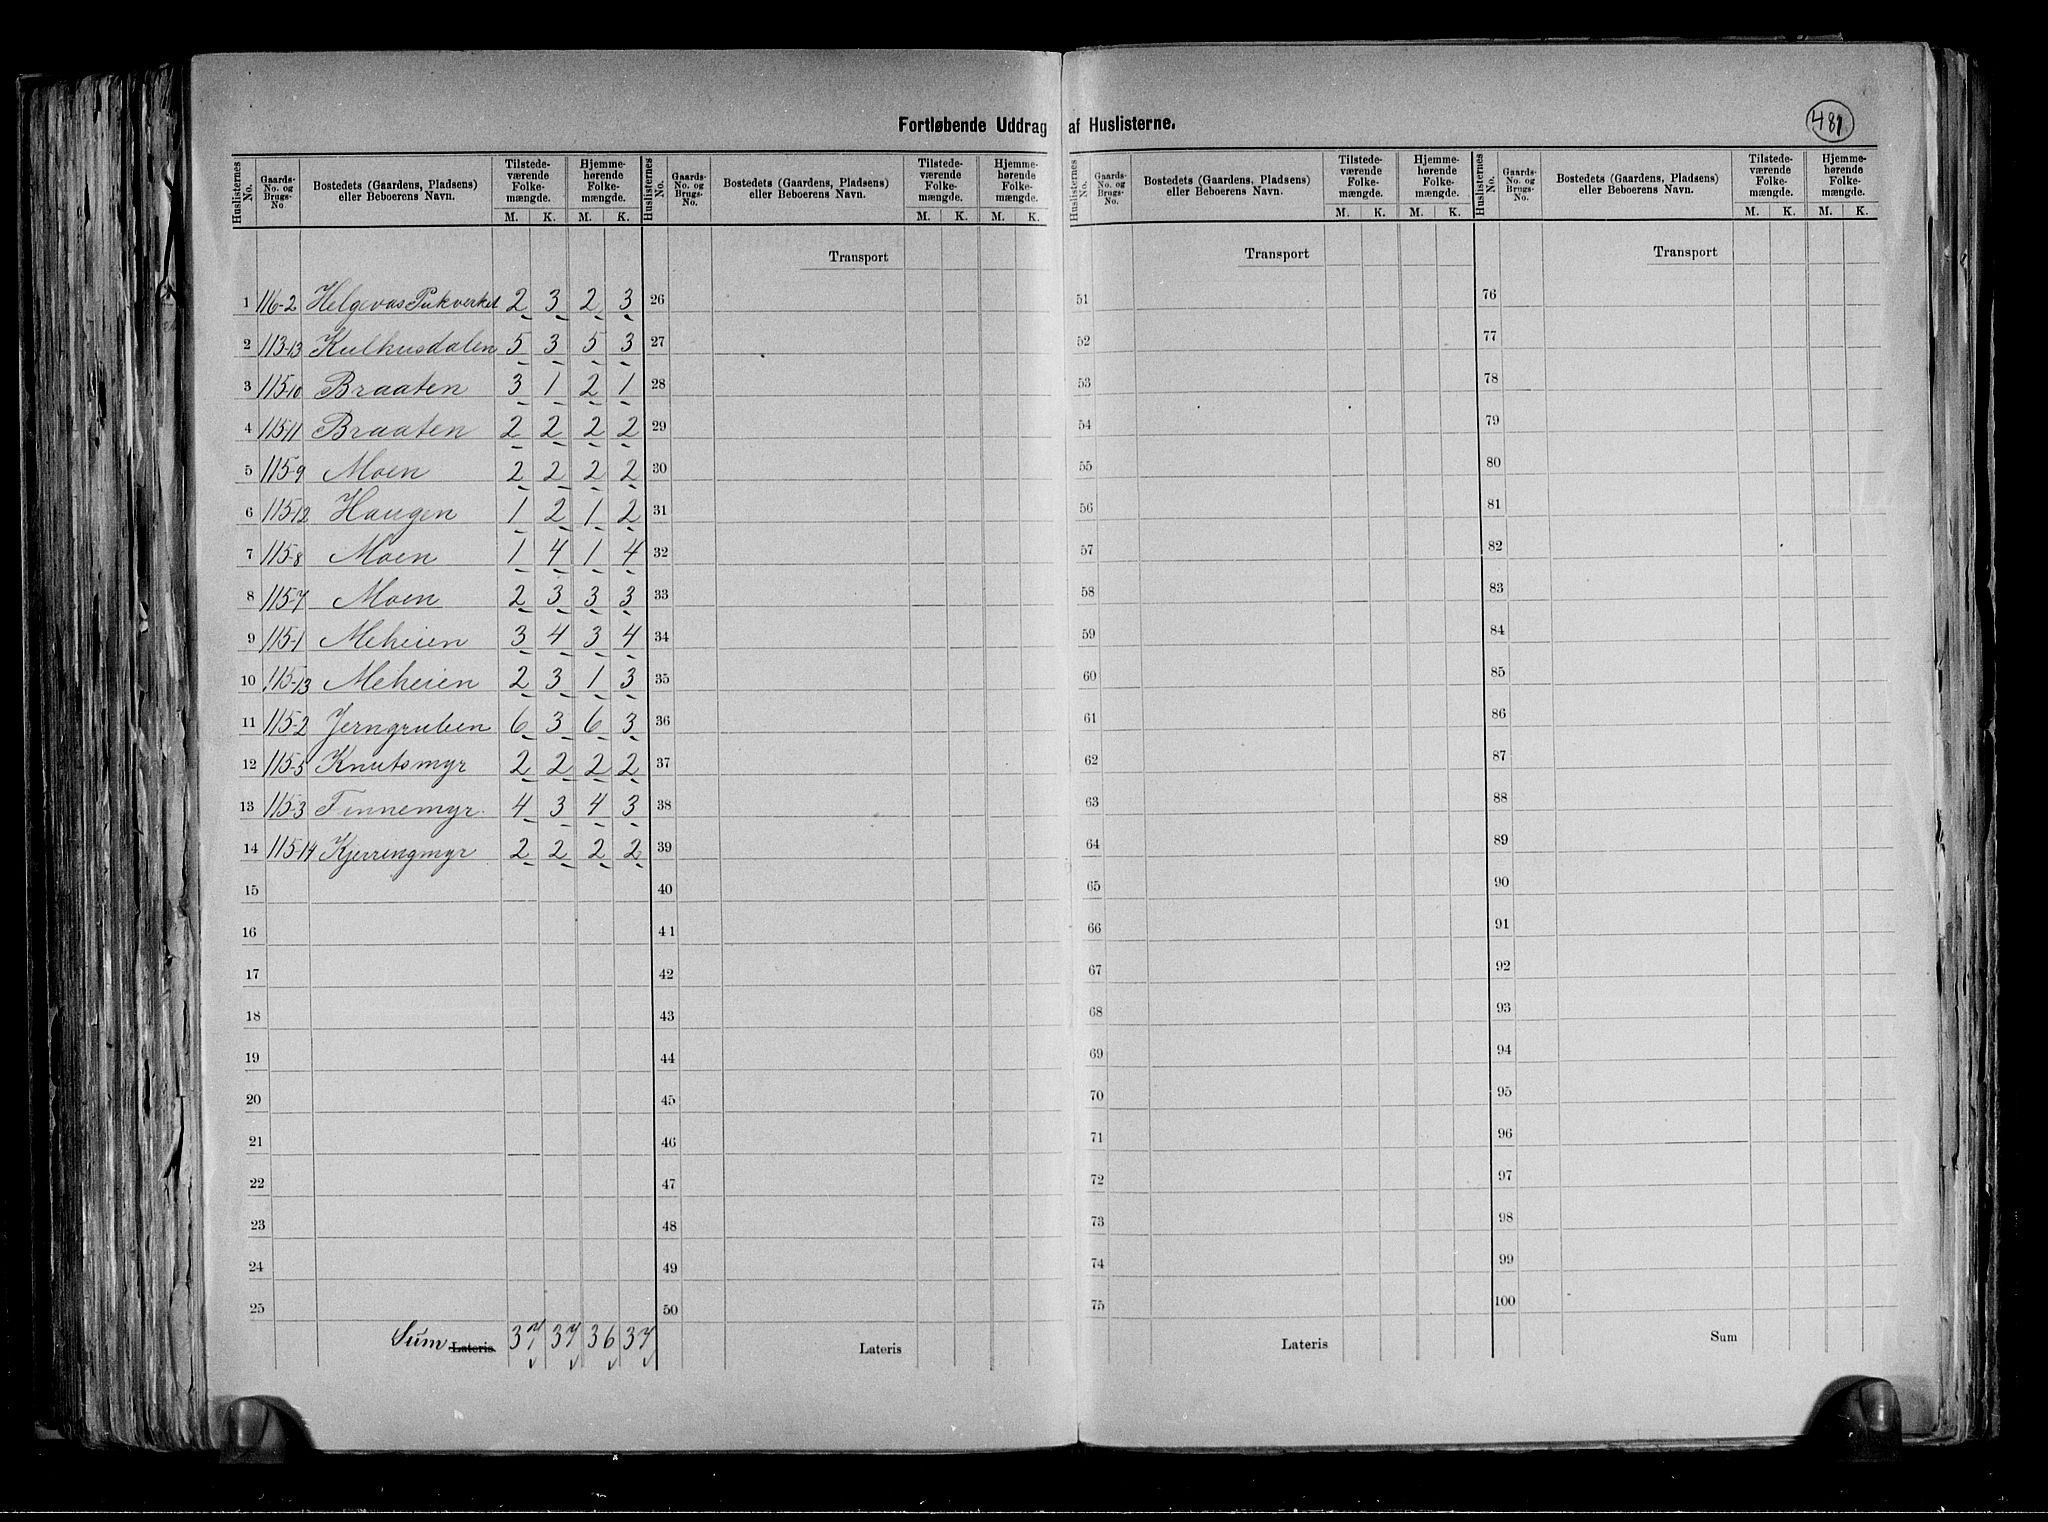 Fortløbende Uddrag af Huslisterne.
481
Huslisternes No.
Gaards-No. og Brugs-No
Bostedets (Gaardens, Pladsens) eller Beboerens Navn.
Tilstede-værende Folke-mængde.
Hjemme-hørende Folke-mængde.
M. K. M. K.
Huslisternes No.
Gaards-No. og Brugs-No.
Bostedets (Gaardens, Pladsens) eller Beboerens Navn.
Tilstede-værende Folke-mængde.
Hjemme-hørende Folke-mængde.
M. K. M. K.
Huslisternes No.
Gaards-No. og Brugs-No.
Bostedets (Gaardens, Pladsens) eller Beboerens Navn.
Tilstede-værende Folke-mængde.
Hjemme-hørende Folke-mængde.
M. K. M. K.
Huslisternes No.
Gaards-No. og Brugs-No.
Bostedets (Gaardens, Pladsens) eller Beboerens Navn.
Tilstede-værende Folke-mængde.
Hjemme-hørende Folke-mængde.
M. K. M. K.
Transport Transport Transport
1 116-2 Helgevas Pukverket 2 3 2 3 26 51 76
2 113-13 Kulhusdalen 5 3 5 3 27 52 77
3 115-10 Braaten 3 1 2 1 28 53 78
4 115-11 Braaten 2 2 2 2 29 54 79
5 115-9 Moen 2 2 2 2 30 55 80
6 115-12 Haugen 1 2 1 2 31 56 81
7 115-8 Moen 1 4 1 4 32 57 82
8 115-7 Moen 2 3 3 3 33 58 83
9 115-1 Meheien 3 4 3 4 34 59 84
10 115-13 Meheien 2 3 1 3 35 60 85
11 115-2 Jerngruben 6 3 6 3 36 61 86
12 115-5 Knutsmyr 2 2 2 2 37 62 87
13 115-3 Tinnemyr. 4 3 4 3 38 63 88
14 115-14 Kjerringmyr 2 2 2 2 39 64 89
15 40 65 90
16 41 66 91
17 42 67 92
18 43 68 93
19 44 69 94
20 45 70 95
21 46 71 96
22 47 72 97
23 48 73 98
24 49 74 99
25 50 75 100
Sum Lateris 37 37 36 37 Lateris Lateris Sum